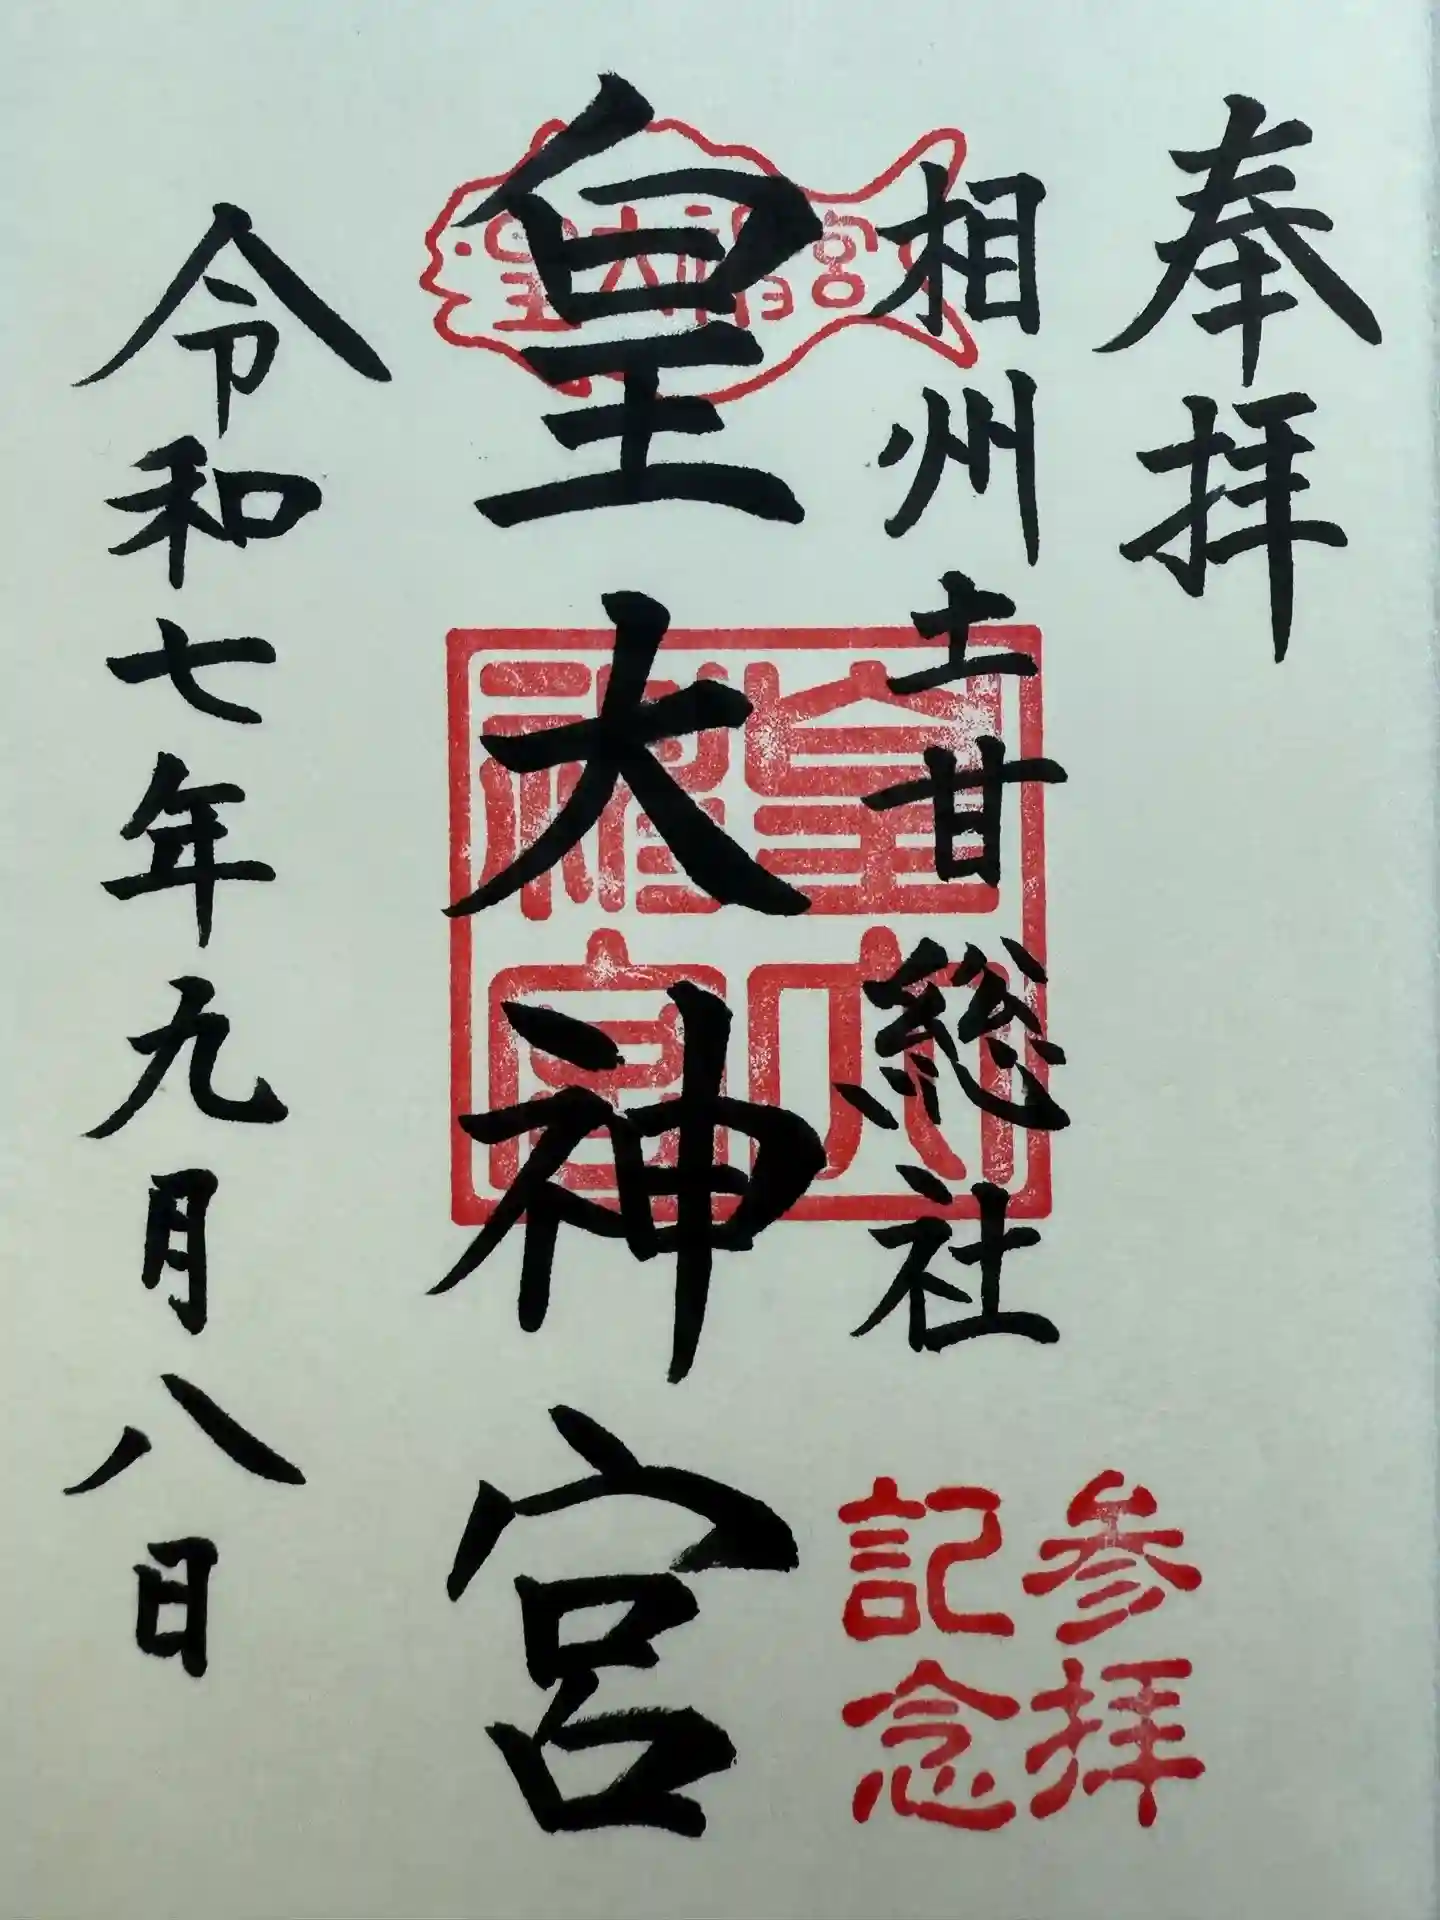 奉拝
相州土甘総社
皇大神宮
令和七年九月八日
皇大神宮
皇大神宮
参拝
記念